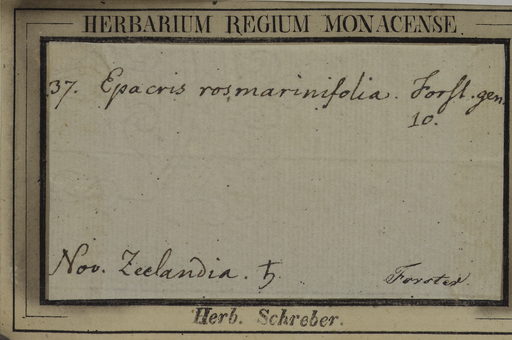 HERBARIUM REGIUM MONACENSE.
37. Epacris rosmarinifolia. Forst. gen.
10.
Nov. Zeelandia. ♄ Forster
Herb. Schreber.